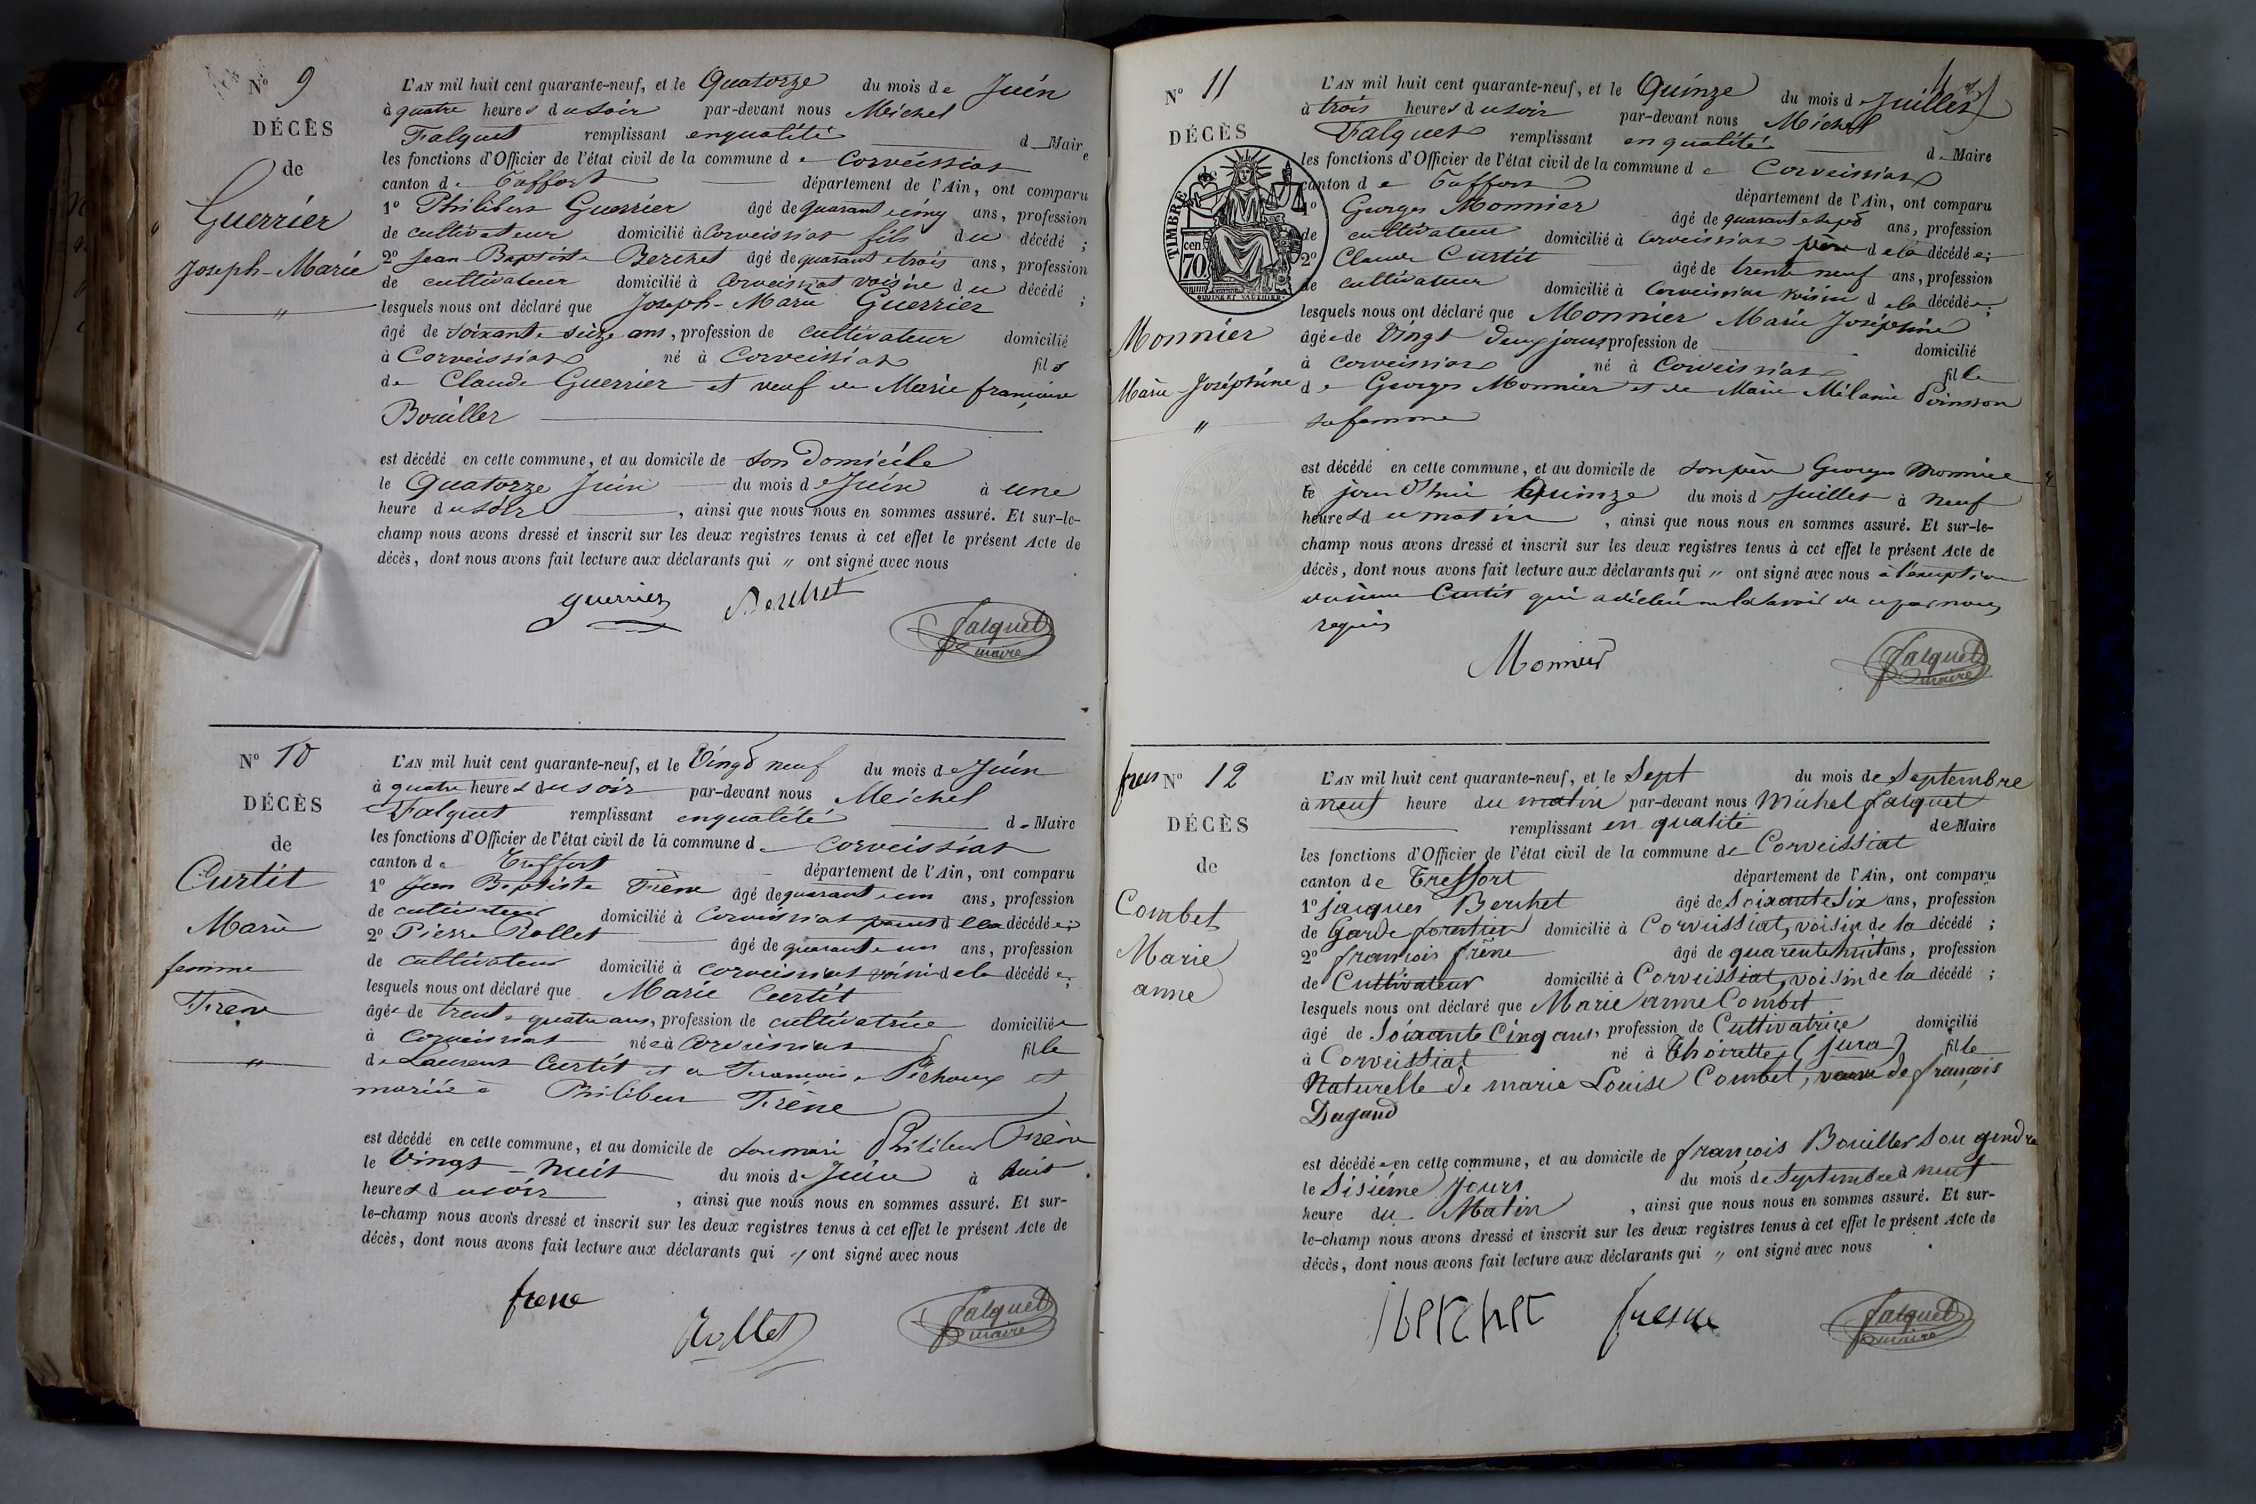 N° 9
DÉCÈS
de
Guerrier
Joseph-Marie
"
L'AN mil huit cent quarante-neuf, et le Quatorze du mois de Juin
à quatre heures du soir par-devant nous Michel
Falquet remplissant en qualité de Maire
les fonctions d'Officier de l'état civil de la commune de Corveissiat
canton de Treffort département de l'Ain, ont comparu
1° Philibert Guerrier âgé de quarante cinq ans, profession
de cultivateur domicilié à Corveissiat fils du décédé ;
2° Jean-Baptiste Berchet âgé de quarante trois ans, profession
de cultivateur domicilié à Corveissiat voisin du décédé ;
lesquels nous ont déclaré que Joseph-Marie Guerrier
âgé de soixante seize ans, profession de cultivateur domicilié
à Corveissiat né à Corveissiat fils
de Claude Guerrier et veuf de Marie françoise
Bouiller
est décédé en cette commune, et au domicile de son Domicile
le Quatorze Juin du mois de Juin à une
heure du soir , ainsi que nous nous en sommes assuré. Et sur-le-
champ nous avons dressé et inscrit sur les deux registres tenus à cet effet le présent Acte de
décès, dont nous avons fait lecture aux déclarants qui " ont signé avec nous
guerrier Berchet
falquet
maire
N° 10
DÉCÈS
de
Curtit
Marie
femme
Frène
"
L'AN mil huit cent quarante-neuf, et le Vingt neuf du mois de Juin
à quatre heures du soir par-devant nous Michel
Falquet remplissant en qualité de Maire
les fonctions d'Officier de l'état civil de la commune de Corveissiat
canton de Treffort département de l'Ain, ont comparu
1° Jean Baptiste Frène âgé de quarante un ans, profession
de cultivateur domicilié à Corveissiat parent de la décédée ;
2° Pierre Rollet âgé de quarante un ans, profession
de cultivateur domicilié à Corveissiat voisin de la décédée ;
lesquels nous ont déclaré que Marie Curtit
âgée de trente quatre ans, profession de cultivatrice domiciliée
à Corveissiat née à Corveissiat fille
de Laurent Curtit et de Françoise Pichoux et
mariée à Philibert Frène
est décédé en cette commune, et au domicile de son mari Philibert Frène
le Vingt-huit du mois de Juin à huit
heures du soir , ainsi que nous nous en sommes assuré. Et sur-
le-champ nous avons dressé et inscrit sur les deux registres tenus à cet effet le présent Acte de
décès, dont nous avons fait lecture aux déclarants qui " ont signé avec nous
frene Rollet
falquet
maire
N° 11
DÉCÈS
TIMBRE
cen 70
OUDINÉ ET VAUTHIER
Monnier
Marie Joséphine
"
L'AN mil huit cent quarante-neuf, et le Quinze du mois de Juillet
à trois heures du soir par-devant nous Michel
Falquet remplissant en qualité de Maire
les fonctions d'Officier de l'état civil de la commune de Corveissiat
canton de Treffort département de l'Ain, ont comparu
1° Georges Monnier âgé de quarante sept ans, profession
de cultivateur domicilié à Corveissiat père de la décédée ;
2° Claude Curtit âgé de trente neuf ans, profession
de cultivateur domicilié à Corveissiat voisin de la décédée ;
lesquels nous ont déclaré que Monnier Marie Joséphine
âgée de Vingt deux jours profession de domicilié
à Corveissiat né à Corveissiat fille
de Georges Monnier et de Marie Mélanie Poinsson
sa femme
est décédé en cette commune, et au domicile de son père Georges Monnier
le jour d'hui Quinze du mois de Juillet à neuf
heures du matin , ainsi que nous nous en sommes assuré. Et sur-le-
champ nous avons dressé et inscrit sur les deux registres tenus à cet effet le présent Acte de
décès, dont nous avons fait lecture aux déclarants qui " ont signé avec nous à l'exception
Curtit qui a déclaré ne le savoir de ce par nous
requis
Monnier
falquet
maire
N° 12
DÉCÈS
de
Combet
Marie
anne
L'AN mil huit cent quarante-neuf, et le Sept du mois de Septembre
à neuf heure du matin par-devant nous Michel falquet
remplissant en qualité de Maire
les fonctions d'Officier de l'état civil de la commune de Corveissiat
canton de Treffort département de l'Ain, ont comparu
1° jacques Berchet âgé de Soixante Six ans, profession
de Garde forestier domicilié à Corveissiat, voisin de la décédé ;
2° françois frêne âgé de quarente huit ans, profession
de Cultivateur domicilié à Corveissiat, voisin de la décédé ;
lesquels nous ont déclaré que Marie anne Combet
âgé de Soixante Cinq ans, profession de Cultivatrice domicilié
à Corveissiat né à Thoirette (jura) fille
Naturelle de marie Louise Combet, veuve de françois
Dagaud
est décédée en cette commune, et au domicile de françois Bouiller Son gendre
le Sisiéme jours du mois de Septembre à neuf
heure du Matin , ainsi que nous nous en sommes assuré. Et sur-
le-champ nous avons dressé et inscrit sur les deux registres tenus à cet effet le présent Acte de
décès, dont nous avons fait lecture aux déclarants qui " ont signé avec nous
berchet fresne
falquet
maire